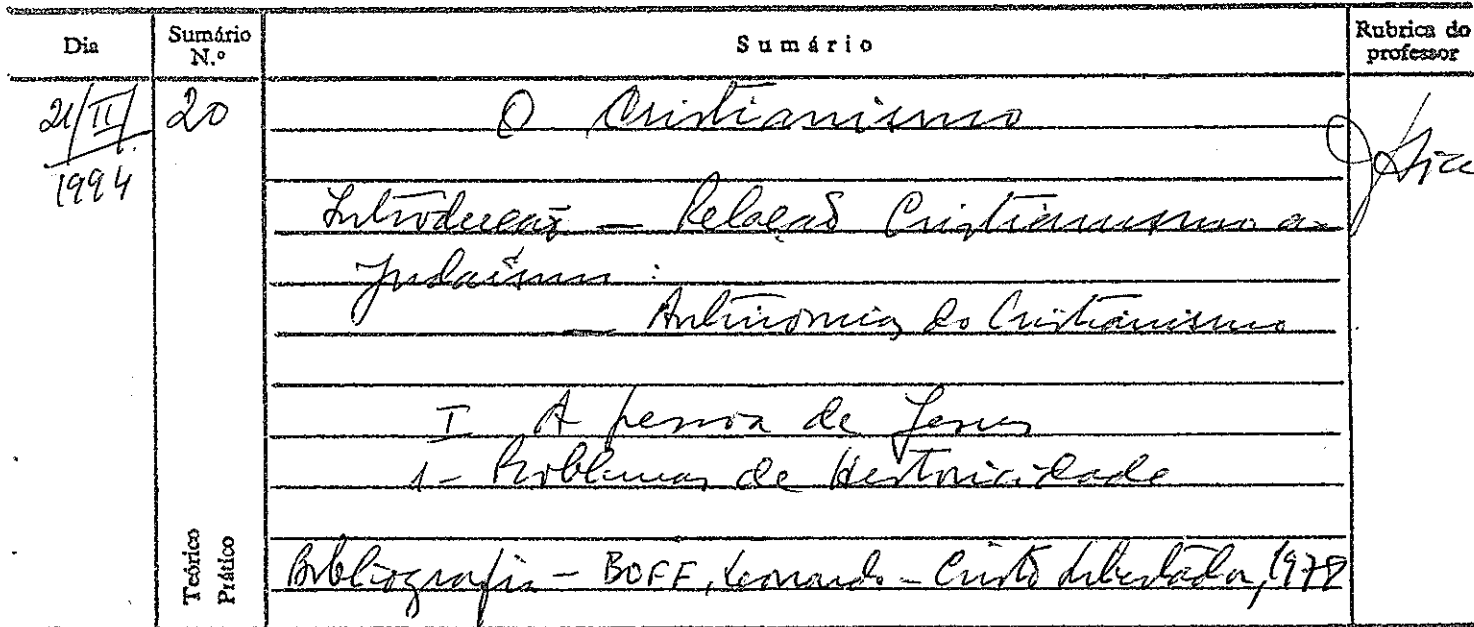 Dia
Sumário N.º
Sumário
Rubrica do professor
21/II/1994
20
O Cristianismo
Introdução — Relação Cristianismo ao
Judaísmo :
— Antinomias do Cristianismo
I A pessoa de Jesus
1 - Problemas de Historicidade
Teórico
Prático
Bibliografia - BOFF, Leonardo - Cristo Libertador, 1978